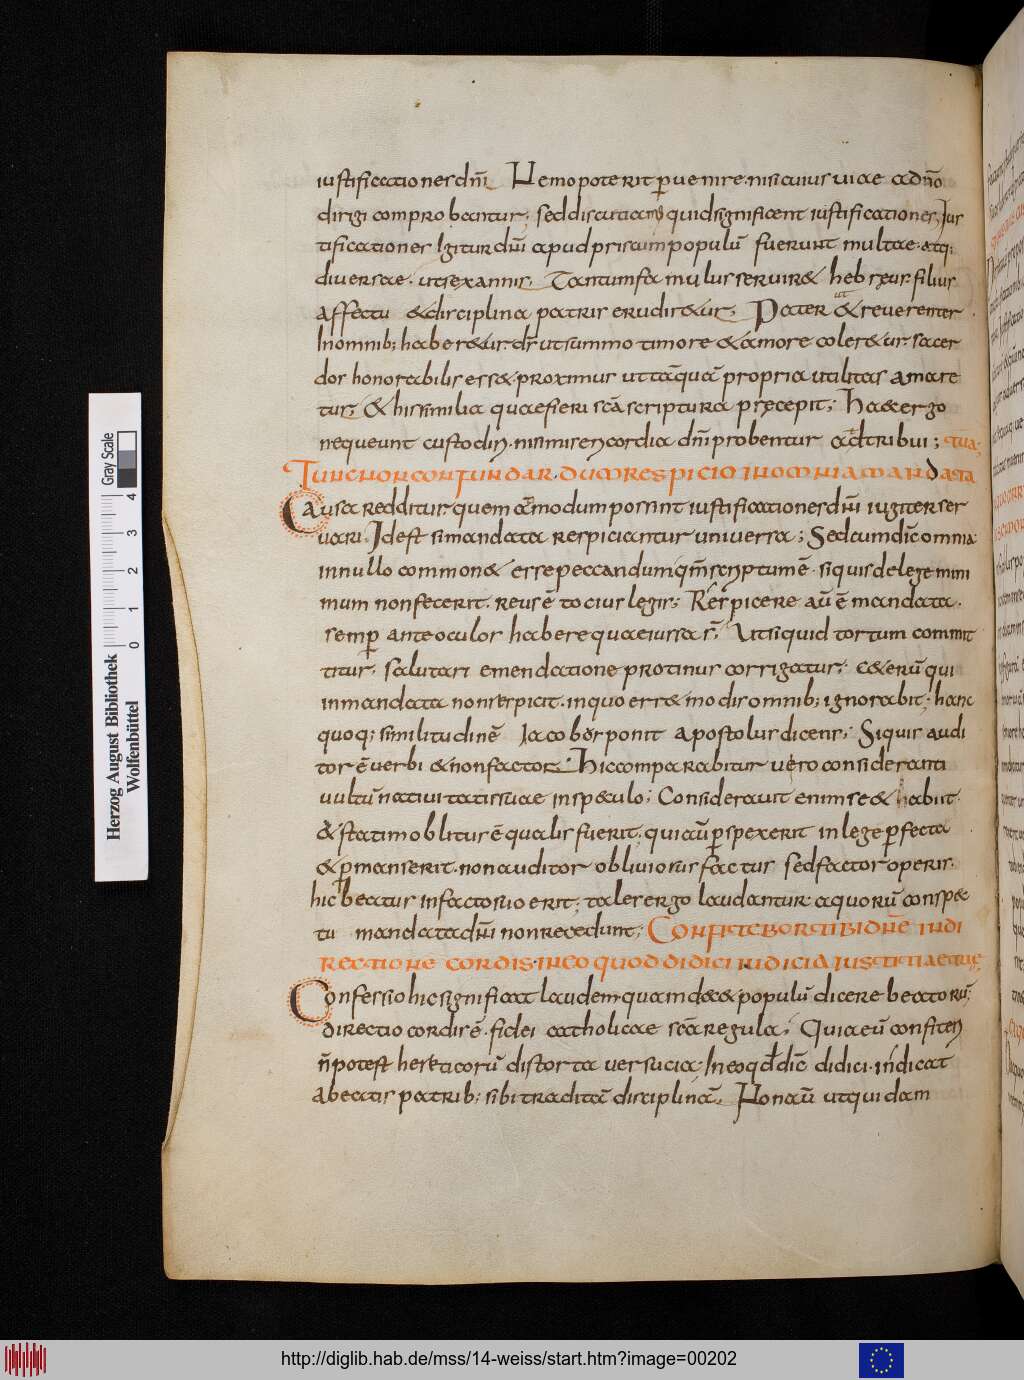 iustificationes dn̄i Nemo poterit ꝑuenire. nisi cuius uiae ad dn̄o
dirigi comprobantur; sed discutiam' quid significent iustificationes. Jus
tificationes Igitur dn̄i apud priscum populū fuerunt multae. atq;
diuersae. ut sex annis. Tantum famulus seruir& hebręus. filius
affectu & disciplina patris erudir&ur; Pater & reuerenter
ut
In omnib; haber&ur. dr̄ ut summo timore & amore coler&ur. sacer
dos honorabilis ess&. proximus ut tāquā propria utilitas amare
tur; & his similia quae fieri scā scriptura pręcepit; Haec ergo
nequeunt custodiri. nisi misericordia dn̄i probentur adtribui; tua;
Tunc non confundar. dum respicio in omnia mandata
Causa redditur. quem admodum possint iustificationes dn̄i iugiter ser
uari. Idest si mandata respiciantur uniuersa; Sed cum dic̄ omnia
in nullo common& esse peccandum. qm̄ scriptum ē. si quis de lege mini
mum non fecerit. reus ē totius legis; Respicere aū ē mandata.
semꝑ ante oculos habere quae iussa s̄; Ut si quid tortum commit
titur. salutari emendatione protinus corrigatur; c&erū qui
in mandata non respicit. in quo err& modis omnib; ignorabit; hanc
quoq; similitudinē Iacobus ponit apostolus dicens; Siquis audi
tor ē uerbi & non factor. Hic comparabitur uero consideranti
uultū natiuitatis suae in speculo; Considerauit enim se & habiit.
& statim oblitus ē qualis fuerit. qui aū ꝑspexerit in lege ꝑfecta
& ꝑmanserit. non auditor obliuiosus factus sed factor operis.
hic beatus in facto suo erit; tales ergo laudantur. a quorū conspe
tu mandata dn̄i non recedunt; Confitebor tibi dn̄e in di
rectione cordis. in eo quod didici iudicia iustitiae tuę;
Confessio hic significat laudem. quam dec& populū dicere beatorū;
directio cordis ē. fidei catholicae scā regula; Quia eū confiteri
n̄ potest hereticorū distorta uersucia; In eo qd̄ dic̄ didici. indicat
a beatis patrib; sibi traditā disciplinā. Non aū ut quidam
Herzog August Bibliothek
Wolfenbüttel
0 1 2 3 4
Gray Scale
http://diglib.hab.de/mss/14-weiss/start.htm?image=00202